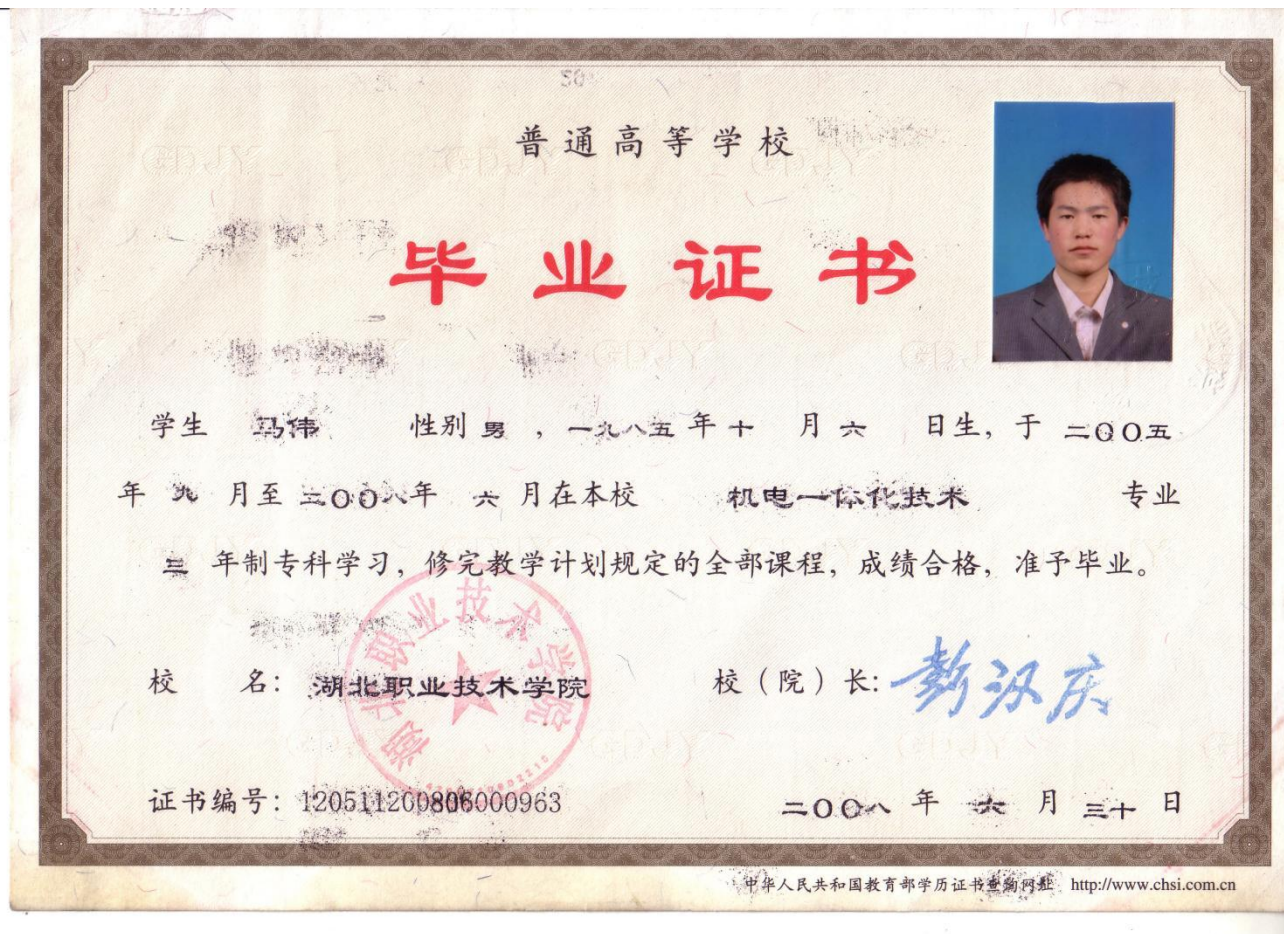 普通高等学校
毕业证书
学生 马伟 性别 男 ，一九八五 年 十 月 六 日生，于 二〇〇五
年 九 月至 二〇〇八 年 六 月在本校 机电一体化技术 专业
三 年制专科学习，修完教学计划规定的全部课程，成绩合格，准予毕业。
湖北职业技术学院
校 名：湖北职业技术学院 校（院）长：彭汉庆
证书编号：120511200806000963 二〇〇八 年 六 月 三十 日
中华人民共和国教育部学历证书查询网址 http://www.chsi.com.cn